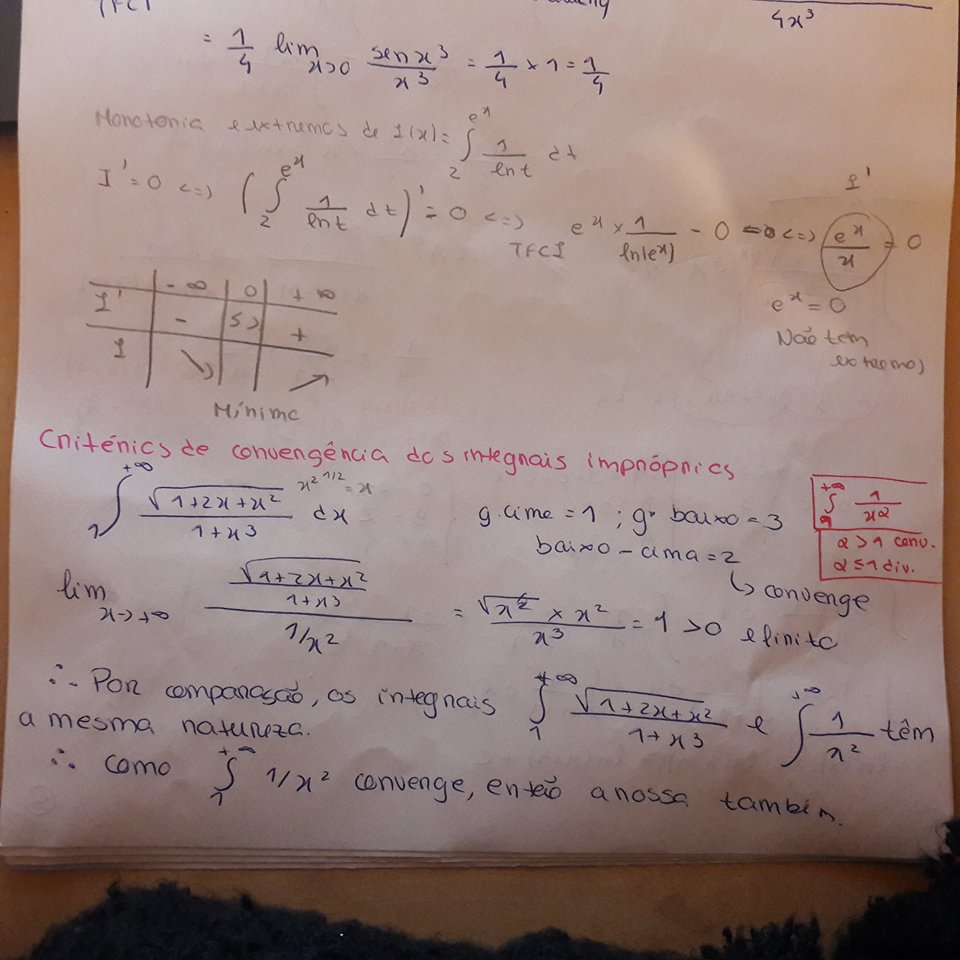 TFCI
4x³
= 1/4 lim x→0 sen x³/x³ = 1/4 × 1 = 1/4
Monotonia e extremos de I(x) = ∫₂^(eˣ) 1/ln t dt
I' = 0 <=> (∫₂^(eˣ) 1/ln t dt)' = 0 <=> TFCI eˣ × 1/ln(eˣ) - 0 = 0 <=> eˣ/x = 0
I'
eˣ = 0
Não tem
extremos
-∞ 0 +∞
I' - +
I ↘ ↗
Mínimo
Critérios de convergência dos integrais impróprios
∫₁^(+∞) √(1+2x+x²)/(1+x³) dx
x^(2 1/2) = x
g. cima = 1 ; g. baixo = 3
baixo - cima = 2
↳ converge
∫^(+∞) 1/x^α
α > 1 conv.
α ≤ 1 div.
lim x→+∞ (√(1+2x+x²)/(1+x³))/(1/x²) = (√x² × x²)/x³ = 1 > 0 e finito
∴ Por comparação, os integrais ∫₁^(+∞) √(1+2x+x²)/(1+x³) e ∫^(+∞) 1/x² têm
a mesma natureza.
∴ como ∫₁^(+∞) 1/x² converge, então a nossa também.